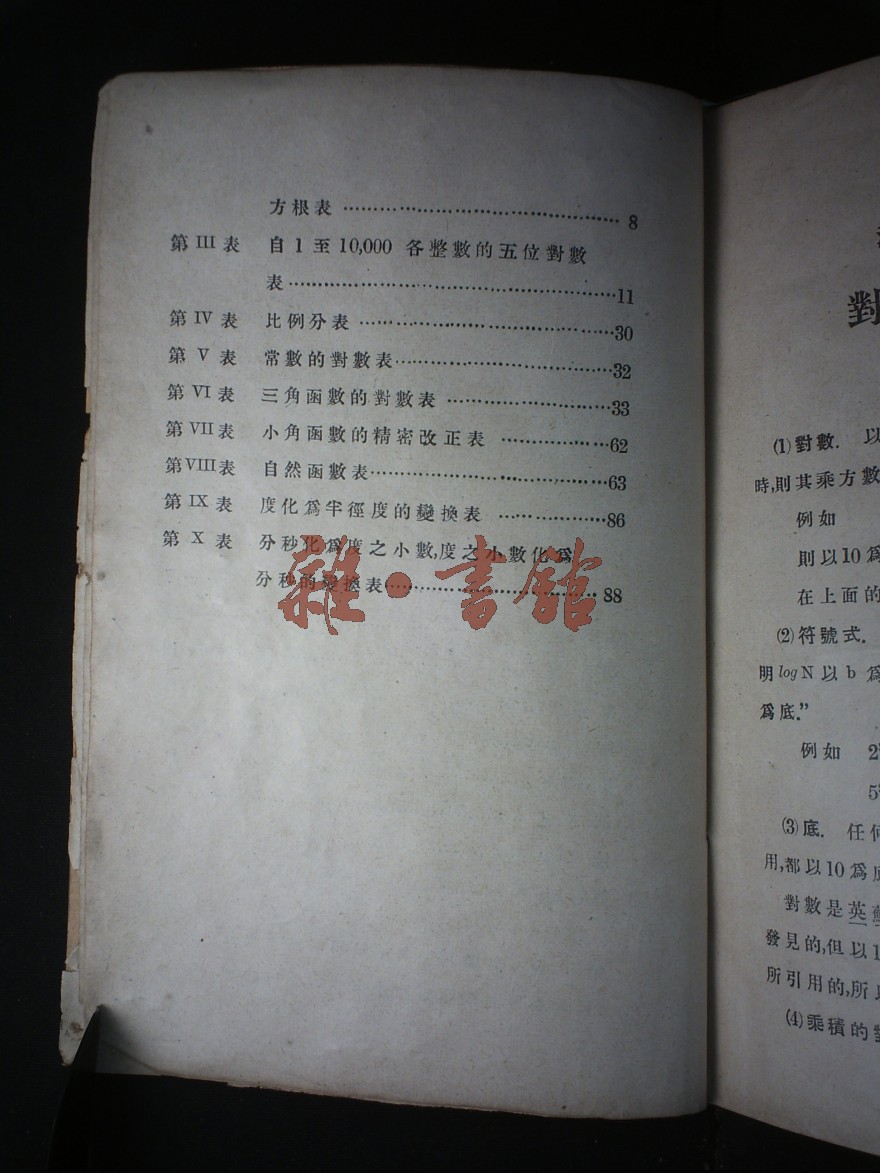 方根表 ……………………………………… 8
第 III 表 自 1 至 10,000 各整數的五位對數
表………………………………………………11
第 IV 表 比例分表 ……………………………………30
第 V 表 常數的對數表………………………………32
第 VI 表 三角函數的對數表 ………………………33
第 VII 表 小角函數的精密改正表 ………………62
第VIII表 自然函數表…………………………………63
第 IX 表 度化爲半徑度的變換表 ………………86
第 X 表 分秒化爲度之小數,度之小數化爲
分秒的變換表………………………………… 88
雜·書館
對
(1)對數. 以
時,則其乘方數
例如
則以10爲
在上面的
(2)符號式.
明 log N 以 b 爲
爲底.”
例如 2
5
(3)底. 任何
用,都以10爲底
對數是英
發見的,但以1
所引用的,所以
(4)乘積的對